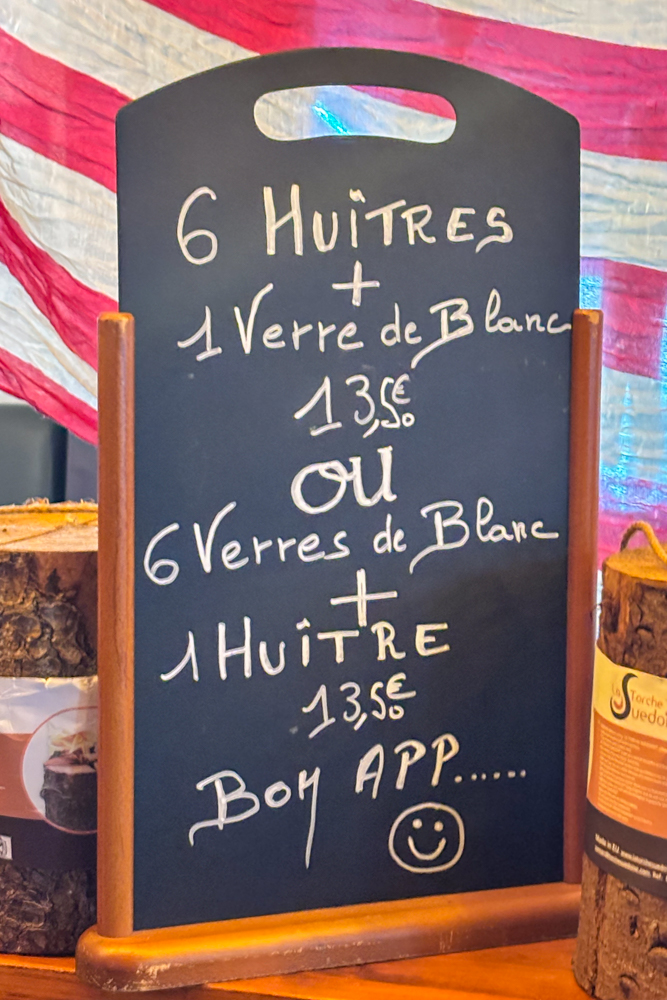 6 HUîTRES
+
1 Verre de Blanc
13,50€
OU
6 Verres de Blanc
+
1 HUîTRE
13,50€
BON APP......
La
Torche
Suédoi
Made in EU